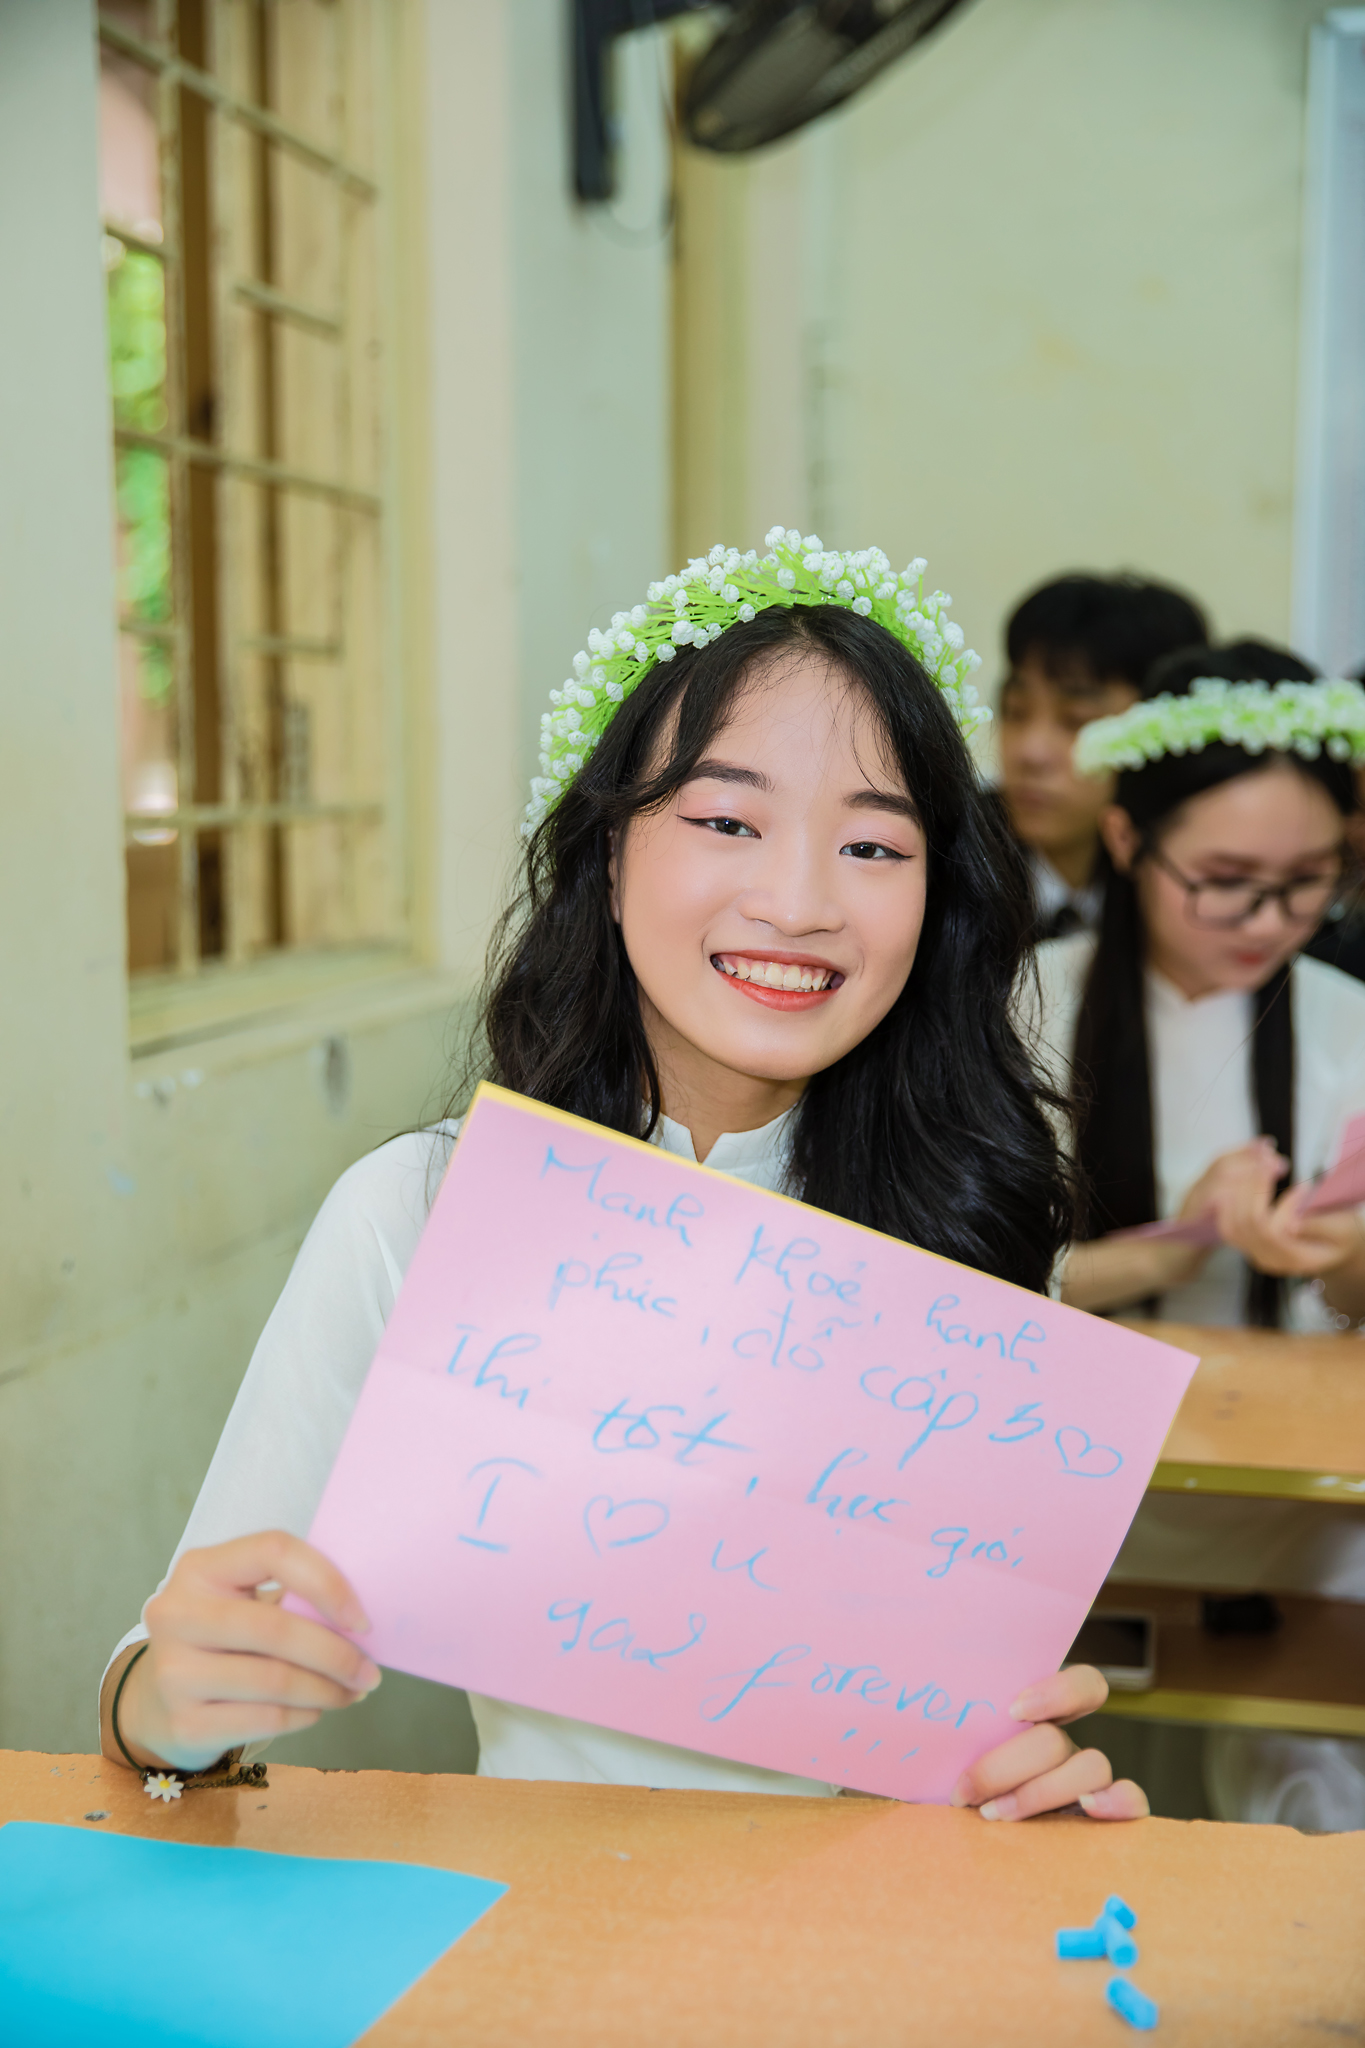 Mạnh khỏe, hạnh
phúc, đỗ cấp 3 ♡
Thi tốt, học giỏi
I ♡ u
gađ forever
!!!